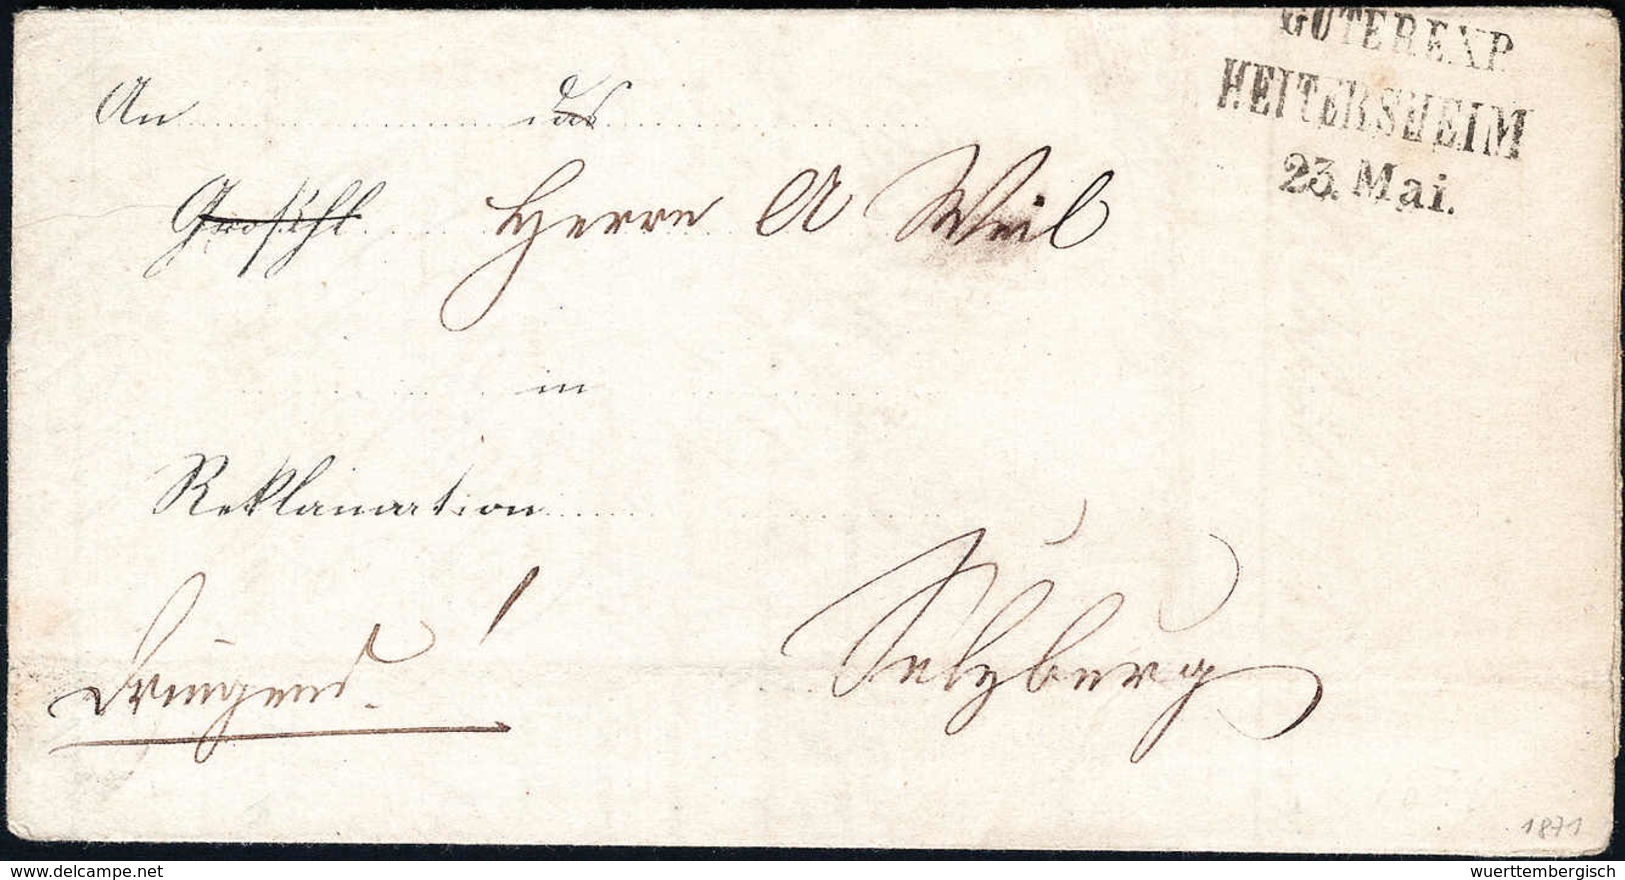 GÜTEREXP.
HEITERSHEIM
23. Mai.
An das
Großhl. Herrn A Weil
in
Reklamation
Dringend!
Sulzburg
1871
www.delcampe.net
wuerttembergisch